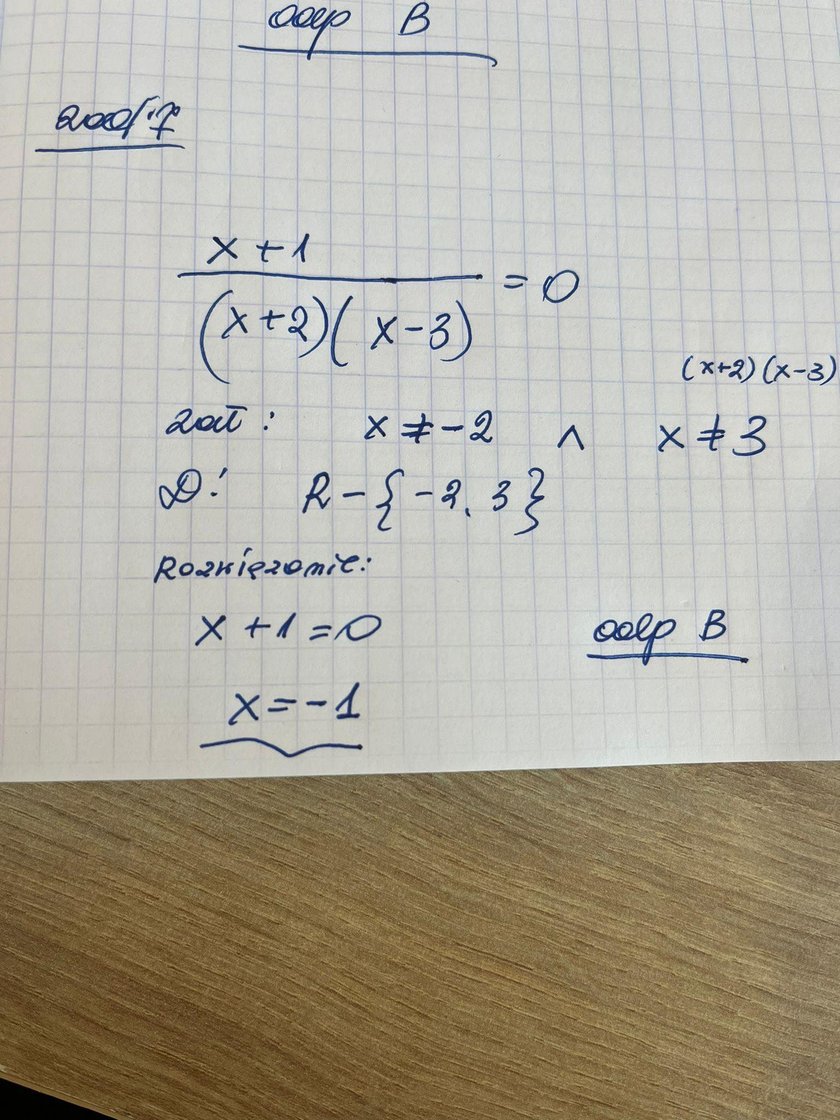 odp B
zad. 7
x + 1
(x+2)(x-3) = 0
(x+2)(x-3)
zał: x ≠ -2 ∧ x ≠ 3
D: R - {-2, 3}
Rozwiązanie:
x + 1 = 0
odp B
x = -1